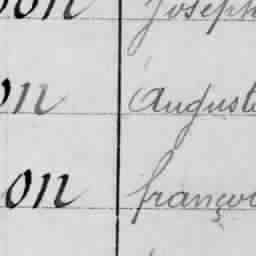 on Joseph
on Auguste
on françoi